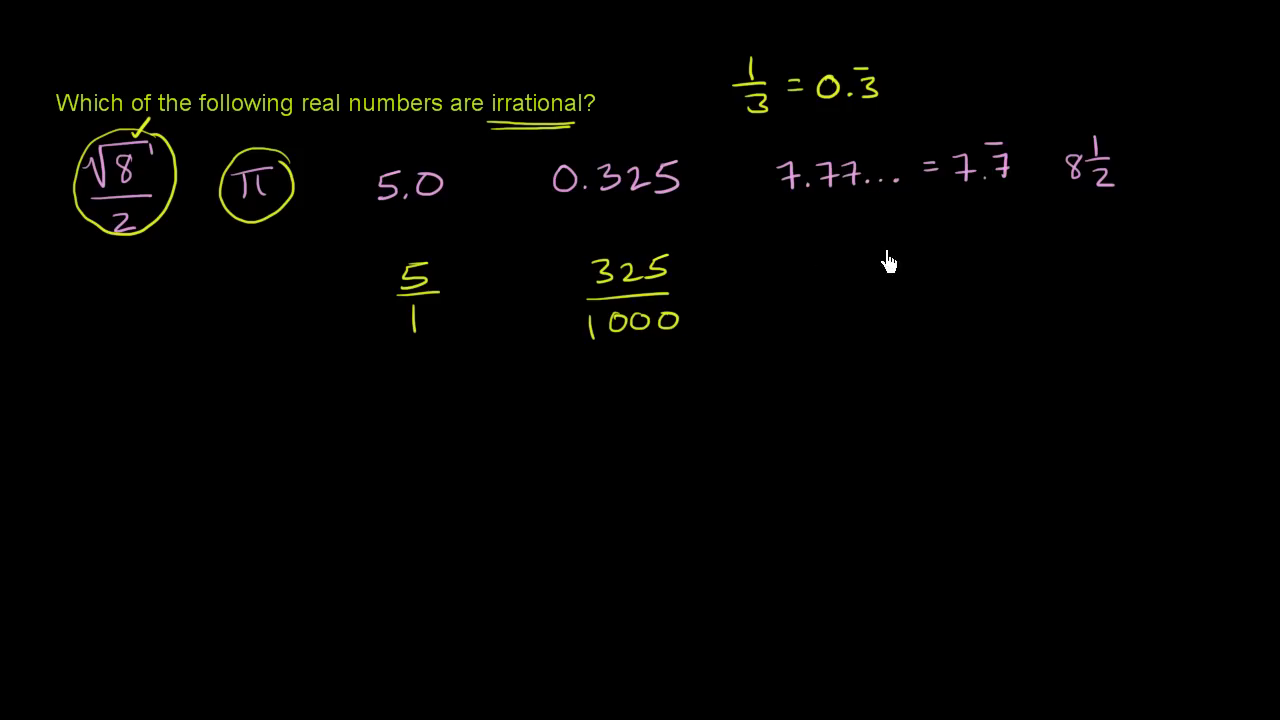 1/3 = 0.3̅
Which of the following real numbers are irrational?
√8/2 π 5.0 0.325 7.77... = 7.7̅ 8 1/2
5/1 325/1000